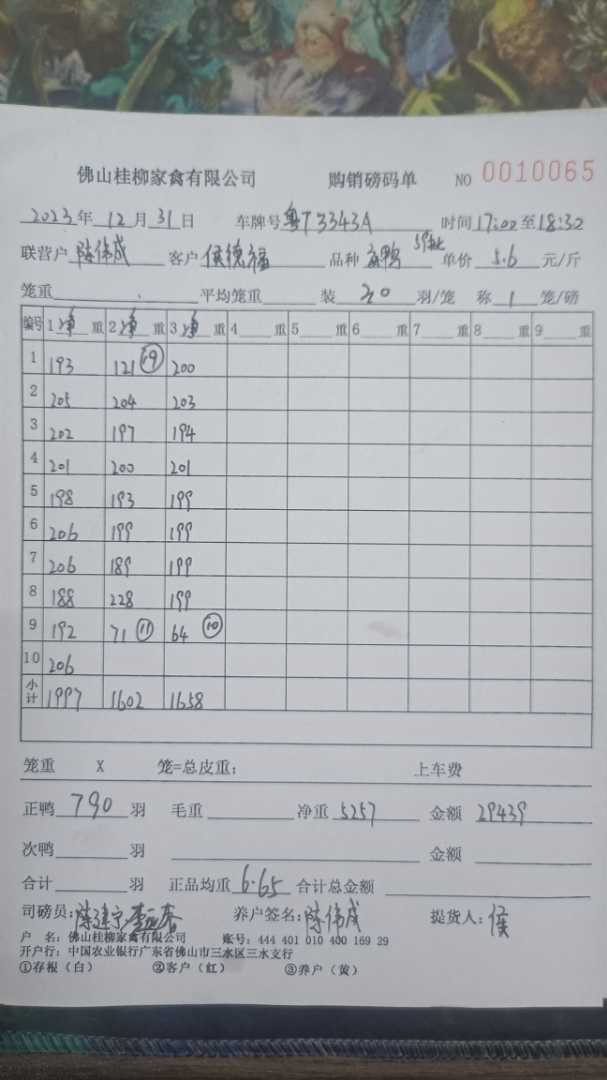 佛山桂柳家禽有限公司 购销磅码单 NO 0010065
2023年12月31日 车牌号粤T3343A 时间17:02至18:32
联营户 陈伟成 客户 侯德福 品种 鸭 单价 5.6 元/斤
笼重 平均笼重 装 30 羽/笼 称 1 笼/磅
编号 1净重 2净重 3净重 4重 5重 6重 7重 8重 9重
1 193 121 ⑲ 200
2 205 204 203
3 202 197 194
4 201 200 201
5 198 193 199
6 206 199 199
7 206 189 199
8 188 228 199
9 192 71 ⑪ 64 ⑩
10 206
小计 1997 1602 1658
笼重 X 笼=总皮重： 上车费
正鸭 790 羽 毛重 净重 5257 金额 29439
次鸭 羽 金额
合计 羽 正品均重 6.65 合计总金额
司磅员： 养户签名：陈伟成 提货人：侯
户 名：佛山桂柳家禽有限公司 账号：444 401 010 400 169 29
开户行：中国农业银行广东省佛山市三水区三水支行
①存根（白） ②客户（红） ③养户（黄）